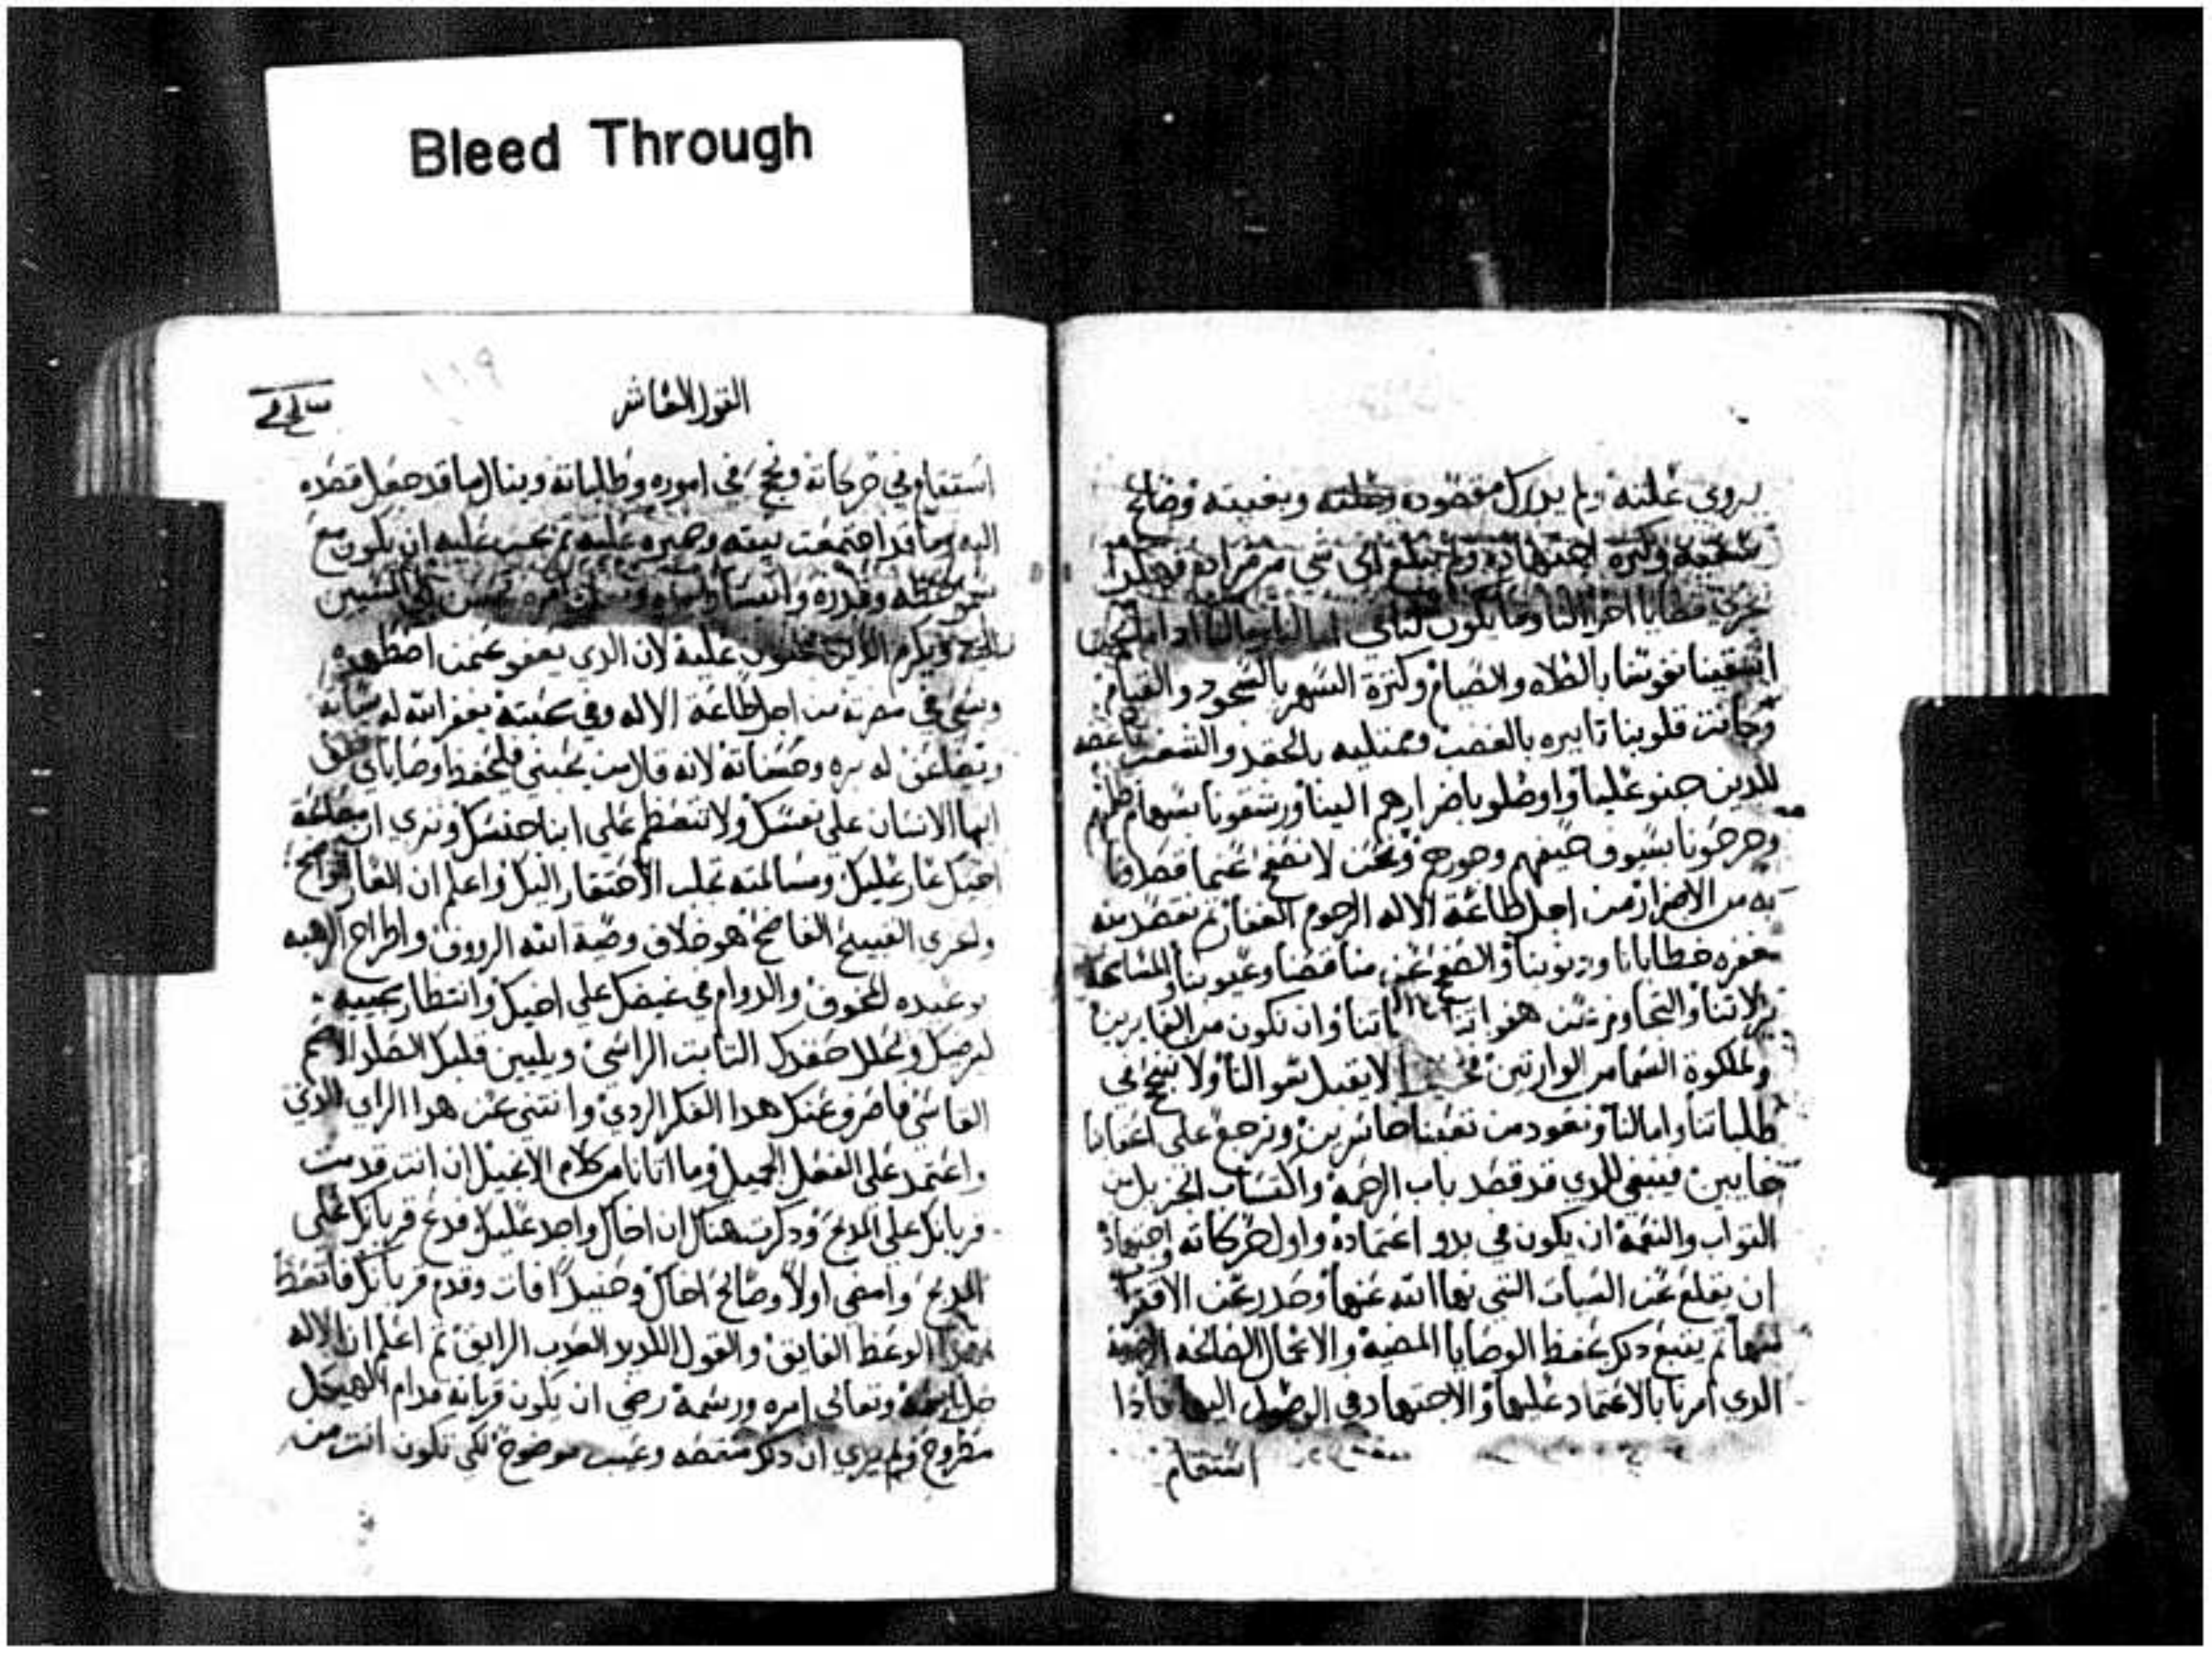 Bleed Through
يروي غلته ولم يدرك مقصوده وبغيته وضايع
وكثرة اجتهاده ولم يبلغ الى شي من مراده
اشقينا نفوسنا بالصلاه والصيام وكثرة السهر بالسجود والقيام
وكانت قلوبنا تايره بالغضب وممتليه بالحقد والشغب
للدين جنو علينا واوصلو باضرارهم الينا ورشقونا بسهام ظلمهم
وجرحونا بسيوف حيفهم وجورهم ونحن لا نصفح عنما قصدونا
به من الاضرار من اجل طاعة الاله الرحوم الغفار ثم نقصد منه
مغفره خطايانا ودنوبنا والصفح عن مناقصنا وعيوبنا والمسامحة
بزلاتنا والتجاوز عن هفواتنا وان نكون من الفايزين
ولملكوة السما من الوارثين لا يقبل سوالنا ولا ننجح في
طلباتنا وامالنا ونعود من تعبنا خاسرين ونرجع على اعقابنا
خايبين فينبغي للدي قد قصد باب الرحمه واكتساب الجزيل من
التواب والنعمة ان يكون في بدو اعتماده واول حركاته واجتهاده
ان يقلع عن السيات التي نهاا الله عنها وحدر عن الاقتراب
منها ثم يتبع دلك بحفظ الوصايا المضيه والاعمال الصالحه
الدي امرنا بالاعتماد عليها والاجتهاد في الوصول اليها فادا
استقام
القول العاشر
استقام في حركاته ونجح في اموره وطلباته وينال ما قد جعل قصده
اليه وما قد اجتمعت نيته وصبره عليه ثم يجب عليه ان يكون مع
ويكرم الدين يجنون عليه لان الدي يعفو عمن اضطهده
وسعى في مضرته من اجل طاعة الاله وفي محبته يغفر الله له سياته
ويضاعف له بره وحسناته لانه قال من يحبني فليحفظ وصاياي
ايها الانسان على نفسك ولا تتعظم على ابنا جنسك وترى ان مصالحة
اخيك عار عليك ومسالمته تجلب الاحتقار اليك واعلم ان العار الواضح
ولعرى القبيح الفاضح هو خلاف وصية الله الرووف واطراح
وعيده المخوف والدوام في غيضك على اخيك وانتظار مجييه
ليرضيك ويحلل حقدك التابت الراسي ويليين قلبك الصلد الاصم
القاسي فاصرف عنك هدا الفكر الردي وانتني عن هدا الراي الدي
واعتمد على الفعل الجميل وما اتانا من كلام الانجيل ان انت قدمت
قربانك على المدبح ودكرت هناك ان اخاك واجد عليك فدع قربانك على
المدبح وامضي اولا وصالح اخاك وحينيدا فات وقدم قربانك فاتعظ
بهدا الوعظ الفايق والقول اللديد العدب الرايق ثم اعلم ان الاله
جل اسمه وتعالى امره ورسمه رضي ان يكون قربانه قدام الهيكل
مطروح ولم يري ان دلك منقصه وعيب موضوع لكي تكون انت من